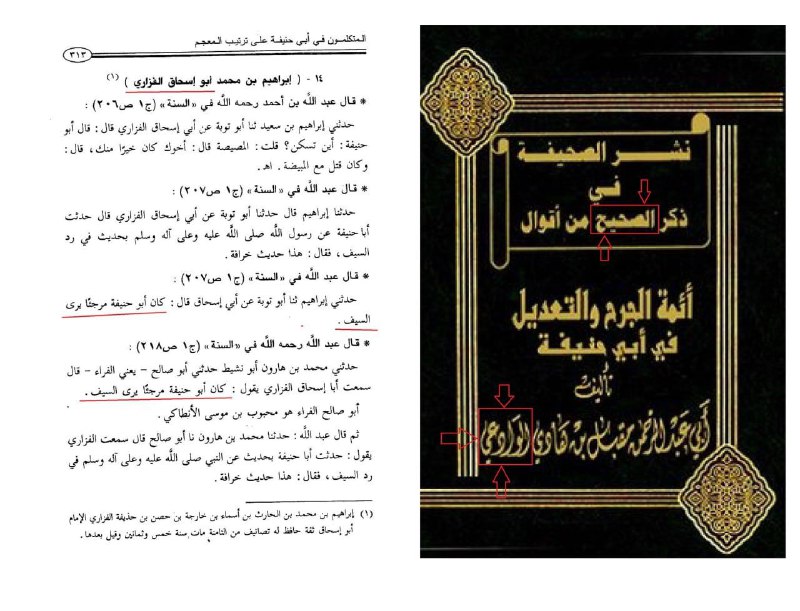 المتكلمون في أبي حنيفة على ترتيب المعجم
٣١٣
١٤ - ( إبراهيم بن محمد أبو إسحاق الفزاري ) (١)
* قال عبد اللَّه بن أحمد رحمه اللَّه في «السنة» (ج١ ص٢٠٦) :
حدثني إبراهيم بن سعيد ثنا أبو توبة عن أبي إسحاق الفزاري قال : قال أبو
حنيفة : أين تسكن؟ قلت : المصيصة قال : أخوك كان خيرًا منك، قال :
وكان قتل مع المبيضة . اهـ.
* قال عبد اللَّه في «السنة» (ج١ ص٢٠٧) :
حدثنا إبراهيم قال حدثنا أبو توبة عن أبي إسحاق الفزاري قال حدثت
أبا حنيفة عن رسول اللَّه صلى اللَّه عليه وعلى آله وسلم بحديث في رد
السيف، فقال : هذا حديث خرافة.
* قال عبد اللَّه في «السنة» (ج١ ص٢٠٧) :
حدثني إبراهيم ثنا أبو توبة عن أبي إسحاق قال : كان أبو حنيفة مرجئًا يرى
السيف .
* قال عبد اللَّه رحمه اللَّه في «السنة» (ج١ ص٢١٨) :
حدثني محمد بن هارون أبو نشيط حدثني أبو صالح - يعني الفراء - قال
سمعت أبا إسحاق الفزاري يقول : كان أبو حنيفة مرجئًا يرى السيف .
أبو صالح الفراء هو محبوب بن موسى الأنطاكي .
ثم قال عبد اللَّه : حدثنا محمد بن هارون نا أبو صالح قال سمعت الفزاري
يقول : حدثت أبا حنيفة بحديث عن النبي صلى اللَّه عليه وعلى آله وسلم في
رد السيف، فقال : هذا حديث خرافة.
(١) إبراهيم بن محمد بن الحارث بن أسماء بن خارجة بن حصن بن حذيفة الفزاري الإمام
أبو إسحاق ثقة حافظ له تصانيف من الثامنة مات سنة خمس وثمانين وقيل بعدها .
نشر الصحيفة
في
ذكر الصحيح من أقوال
أئمة الجرح والتعديل
في أبي حنيفة
تأليف
أبي عبد الرحمن مقبل بن هادي الوادعي